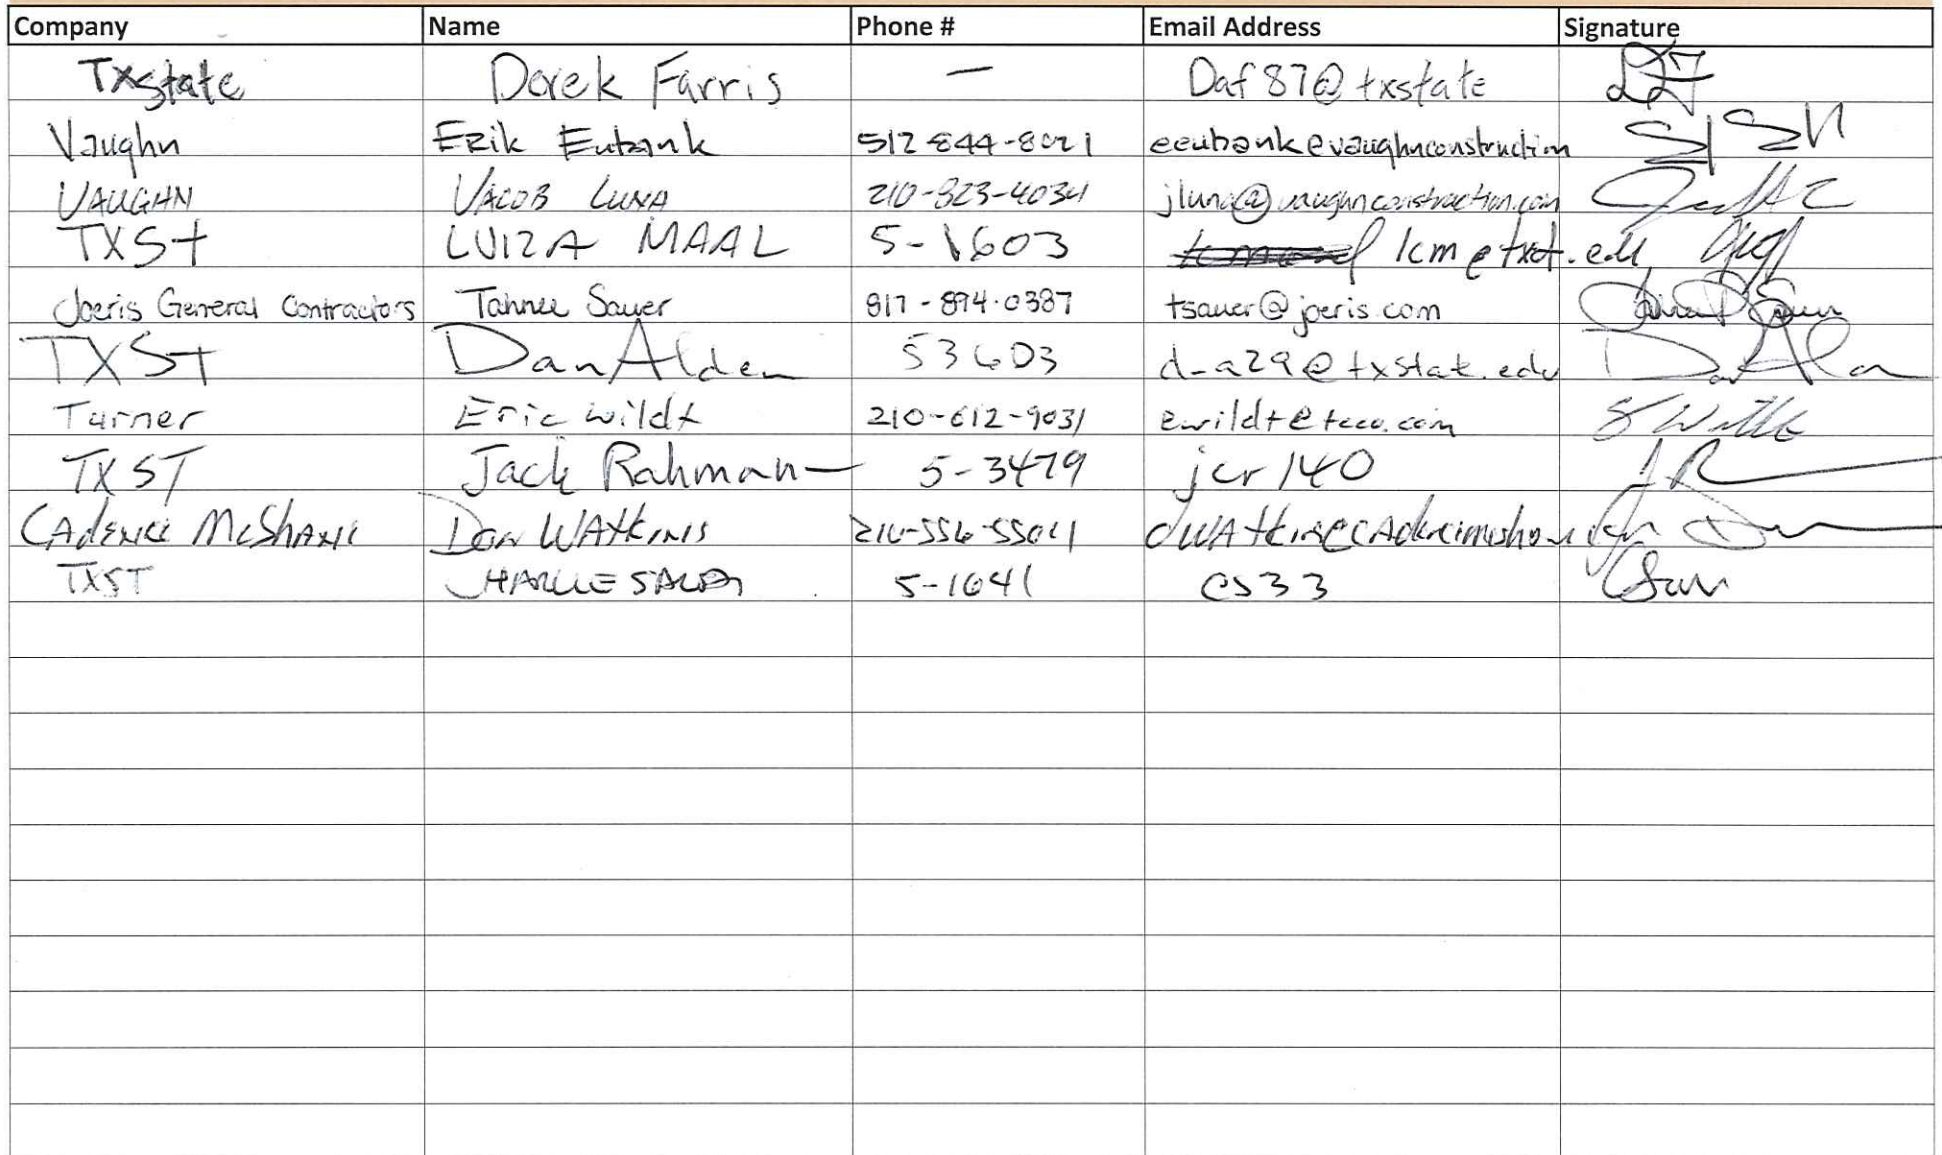 Company Name Phone # Email Address Signature
Txstate Derek Farris — Daf87@txstate
Vaughn Erik Eubank 512-844-8021 eeubank@vaughnconstruction
VAUGHN JACOB LUNA 210-823-4034 jluna@vaughnconstruction.com
TXSt LUIZA MAAL 5-1603 lcm@txst.edu
Joeris General Contractors Tahnee Sauer 817-894-0387 tsauer@joeris.com
TXSt Dan Alden 53603 d_a29@txstate.edu
Turner Eric Wildt 210-612-9031 ewildt@tcco.com
TXST Jack Rahman 5-3479 jcr140
CADENCE McSHANE Don WATKINS
TXST CHARLIE 5-1641 CS33